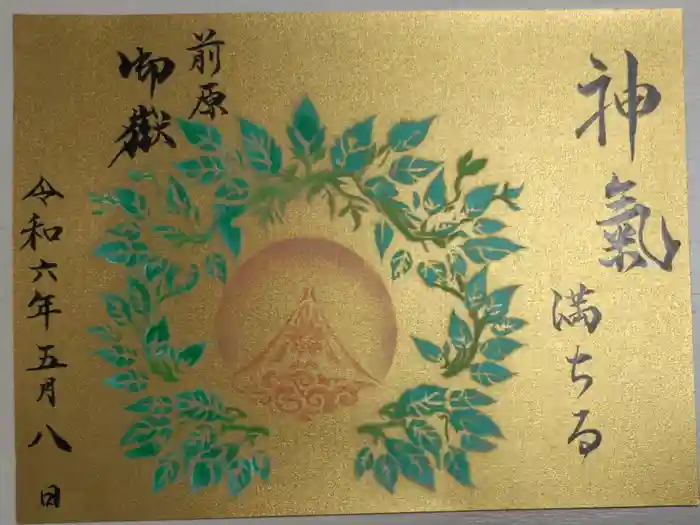 神氣
満ちる
前原
御嶽
令和六年五月八日